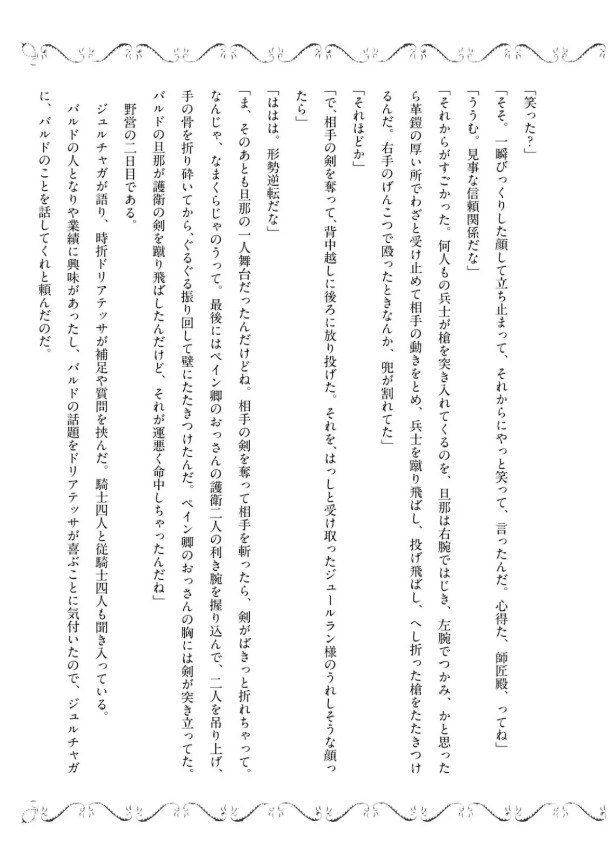 「笑った？」
「そそ。一瞬びっくりした顔して立ち止まって、それからにやっと笑って、言ったんだ。心得た、師匠殿、ってね」
「ううむ。見事な信頼関係だな」
「それからがすごかった。何人もの兵士が槍を突き入れてくるのを、旦那は右腕ではじき、左腕でつかみ、かと思った
ら革鎧の厚い所でわざと受け止めて相手の動きをとめ、兵士を蹴り飛ばし、投げ飛ばし、へし折った槍をたたきつけ
るんだ。右手のげんこつで殴ったときなんか、兜が割れてた」
「それほどか」
「で、相手の剣を奪って、背中越しに後ろに放り投げた。それを、はっしと受け取ったジュールラン様のうれしそうな顔っ
たら」
「ははは。形勢逆転だな」
「ま、そのあとも旦那の一人舞台だったんだけどね。相手の剣を奪って相手を斬ったら、剣がばきっと折れちゃって。
なんじゃ、なまくらじゃのうって。最後にはペイン卿のおっさんの護衛二人の利き腕を握り込んで、二人を吊り上げ、
手の骨を折り砕いてから、ぐるぐる振り回して壁にたたきつけたんだ。ペイン卿のおっさんの胸には剣が突き立ってた。
バルドの旦那が護衛の剣を蹴り飛ばしたんだけど、それが運悪く命中しちゃったんだね」
野営の二日目である。
ジュルチャガが語り、時折ドリアテッサが補足や質問を挟んだ。騎士四人と従騎士四人も聞き入っている。
バルドの人となりや業績に興味があったし、バルドの話題をドリアテッサが喜ぶことに気付いたので、ジュルチャガ
に、バルドのことを話してくれと頼んだのだ。